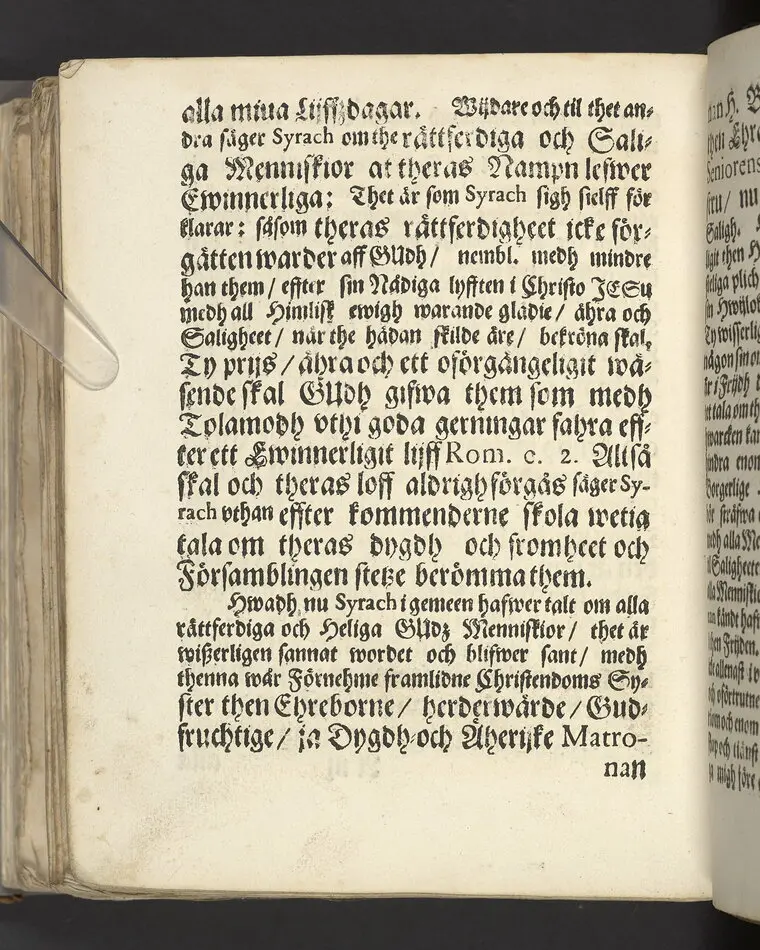 alla mina Lijffzdagar. Wijdare och til thet an-
dra säger Syrach om the rättferdiga och Sali-
ga Menniskior at theras Nampn lefwer
Ewinnerliga; Thet är som Syrach sigh sielff för
klarar: såsom theras rättferdigheet icke för-
gätten warder aff GUdh/ nembl. medh mindre
han them/ effter sin Nådiga lyfften i Christo JESu
medh all Himlisk ewigh warande glädie/ ähra och
Saligheet/ när the hädan skilde äre/ bekröna skal,
Ty prijs/ ähra och ett oförgängeligit wä-
sende skal GUdh gifwa them som medh
Tolamodh vthi goda gerningar fahra eff-
ter ett Ewinnerligit lijff Rom. c. 2. Altså
skal och theras loff aldrigh förgås säger Sy-
rach vthan effter kommenderne skola wetig
tala om theras dygdh och fromheet och
Församblingen stetze berömma them.
Hwadh nu Syrach i gemeen hafwer talt om alla
rättferdiga och Heliga GUdz Menniskior/ thet är
wißerligen sannat wordet och blifwer sant/ medh
thenna wår Förnehme framlidne Christendoms Sy-
ster then Ehreborne/ herderwärde/ Gud-
fruchtige/ ja Dygdh-och Äherijke Matro-
nan